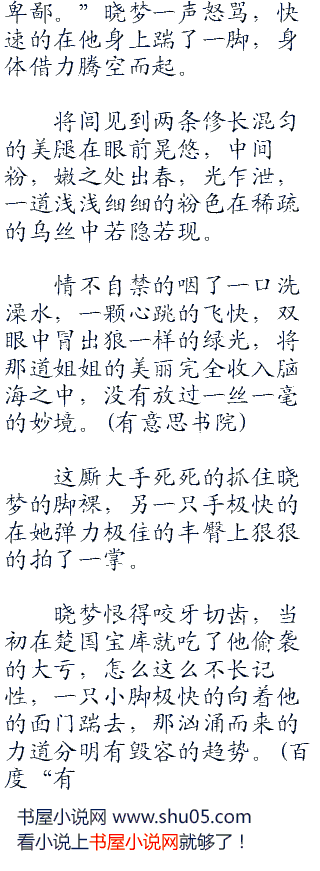 卑鄙。”晓梦一声怒骂，快
速的在他身上踹了一脚，身
体借力腾空而起。
将闾见到两条修长混匀
的美腿在眼前晃悠，中间
粉，嫩之处出春，光乍泄，
一道浅浅细细的粉色在稀疏
的乌丝中若隐若现。
情不自禁的咽了一口洗
澡水，一颗心跳的飞快，双
眼中冒出狼一样的绿光，将
那道姐姐的美丽完全收入脑
海之中，没有放过一丝一毫
的妙境。(有意思书院)
这厮大手死死的抓住晓
梦的脚裸，另一只手极快的
在她弹力极佳的丰臀上狠狠
的拍了一掌。
晓梦恨得咬牙切齿，当
初在楚国宝库就吃了他偷袭
的大亏，怎么这么不长记
性，一只小脚极快的向着他
的面门踹去，那汹涌而来的
力道分明有毁容的趋势。(百
度“有
书屋小说网 www.shu05.com
看小说上书屋小说网就够了！